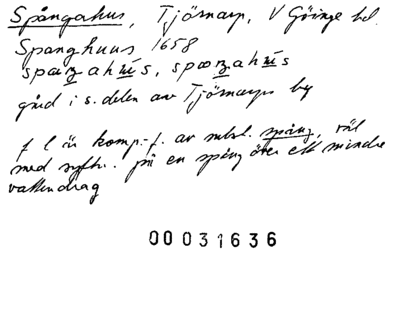 Spångahus, Tjörnarp, V Göinge hd.
Spanghuus 1658
spaŋahu̅s, spaŋahu̅s
gård i s. delen av Tjörnarps by
f l är komp.-f. av subst. spång, väl
med syftn. på en spång över ett mindre
vattendrag
00031636